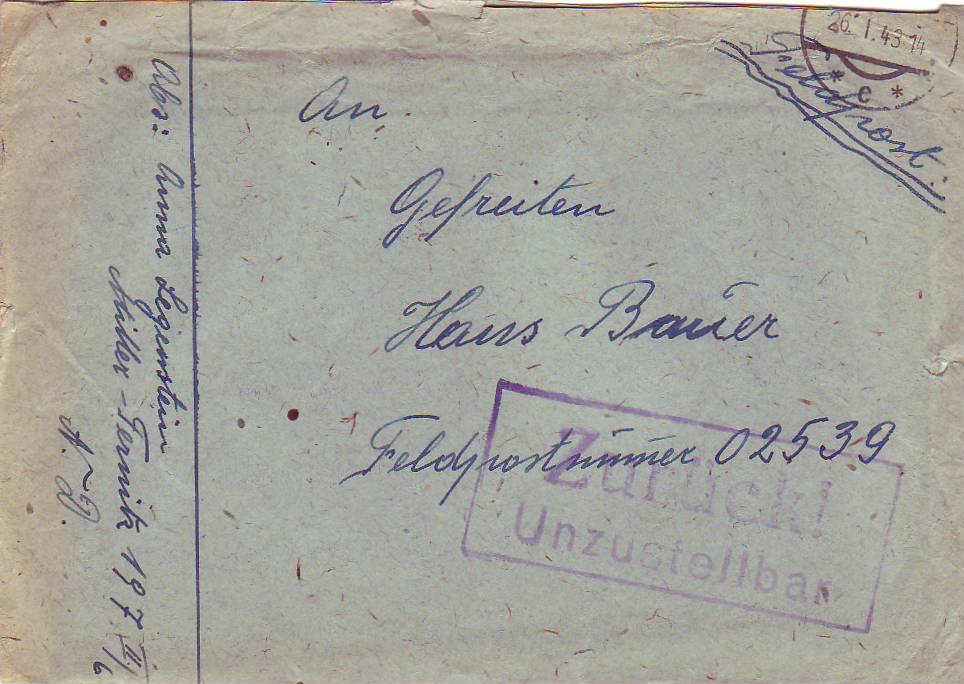 26. 1. 43. 14
* e *
Feldpost.
An
Gefreiten
Hans Bauer
Feldpostnummer 02539
Zurück!
Unzustellbar
Abs: Anna Legenstein
-Ternitz 197 II/6
N. D.